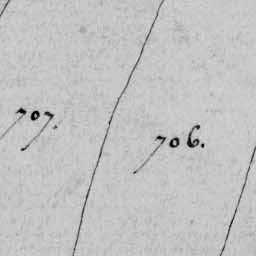 707.
706.